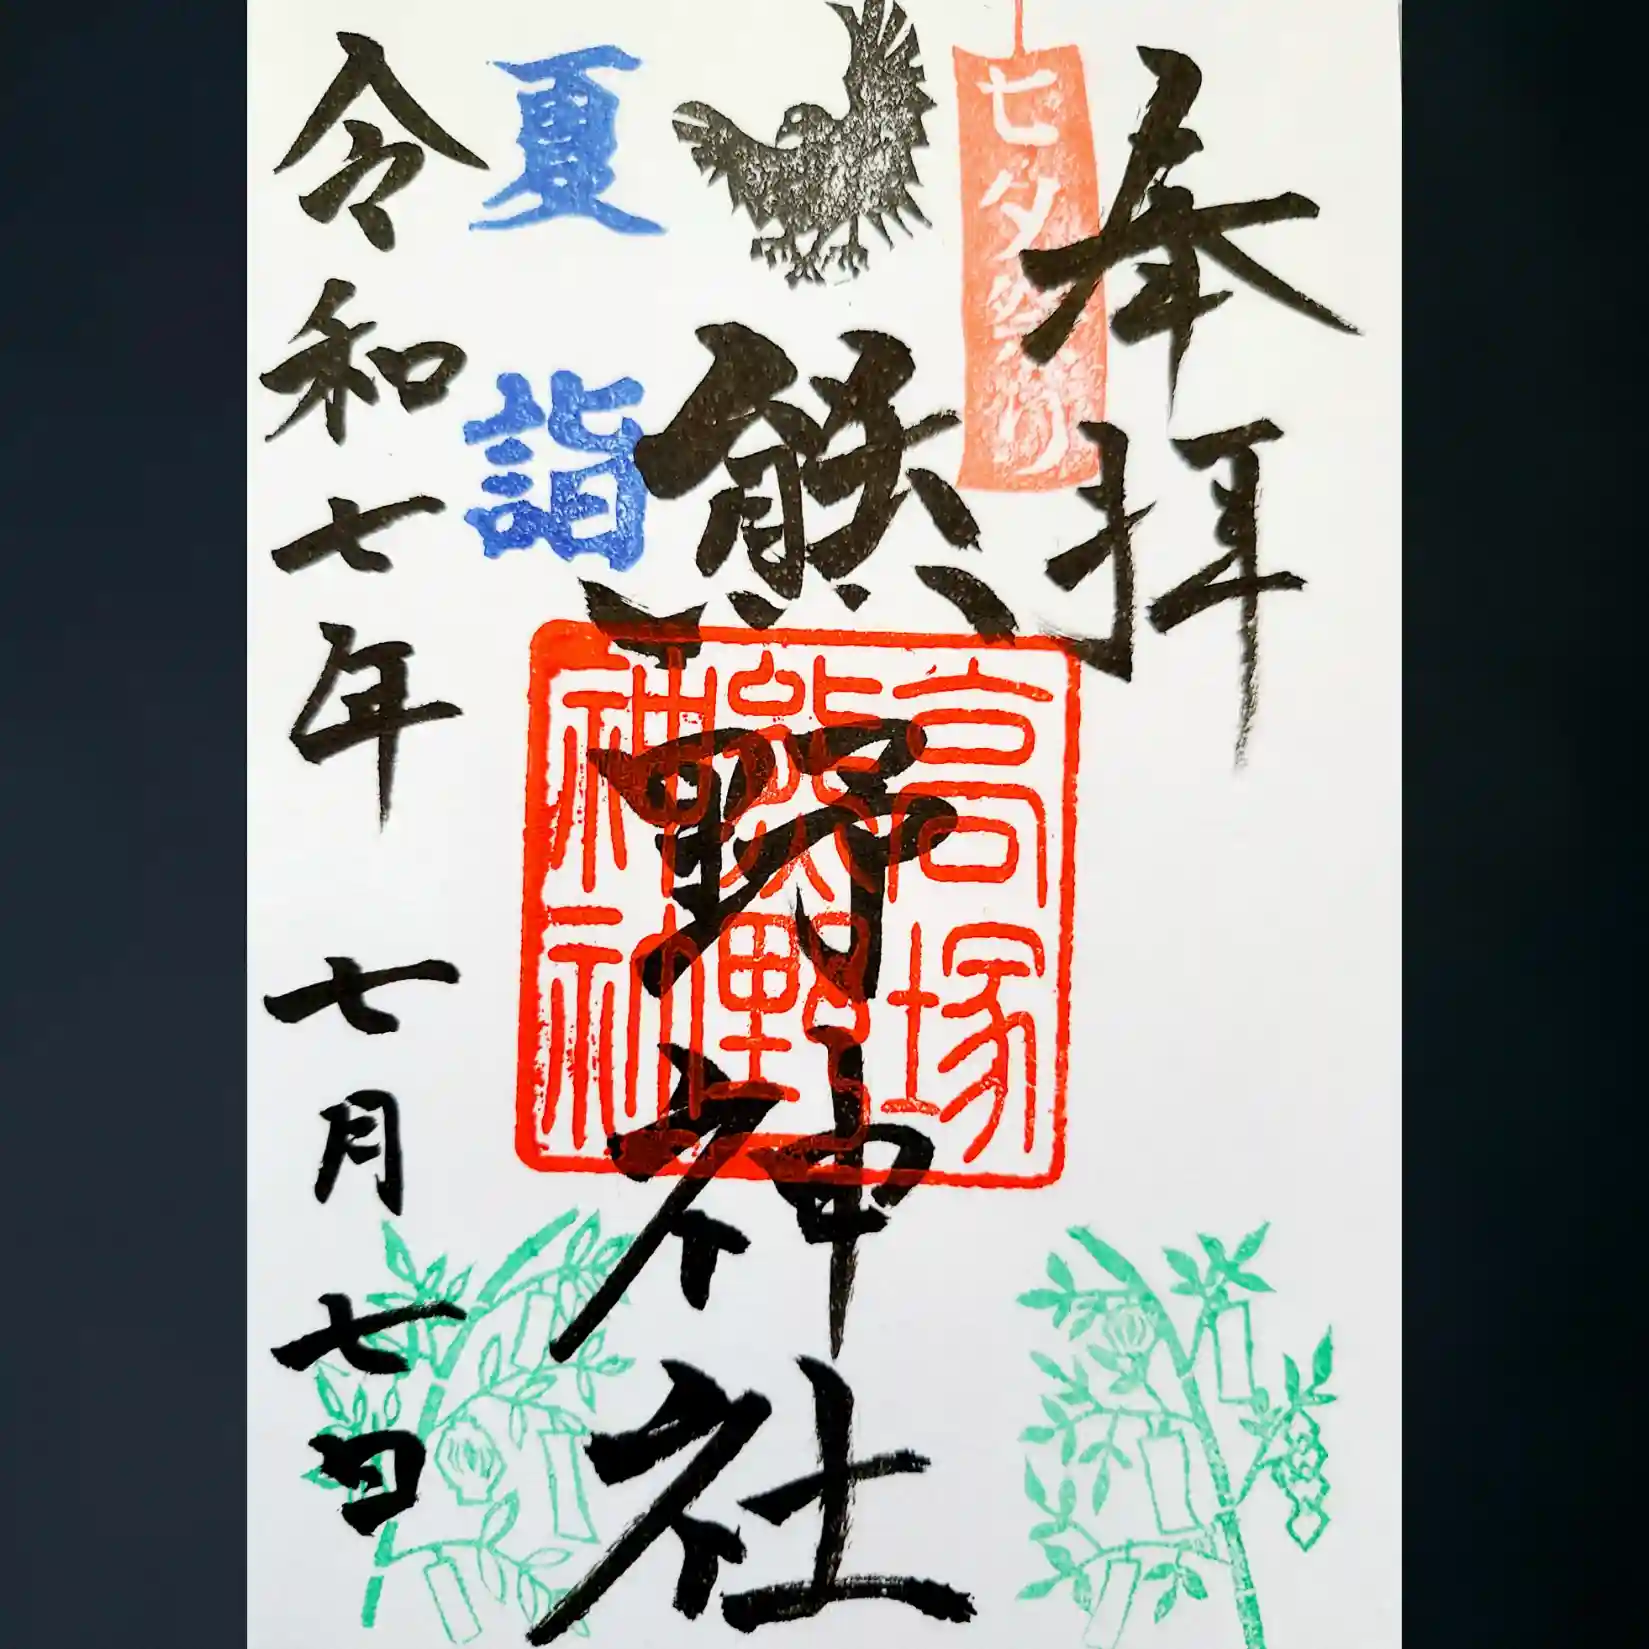 奉拝
七夕祭り
熊野神社
高塚
熊野
神社
夏詣
令和七年 七月 七日